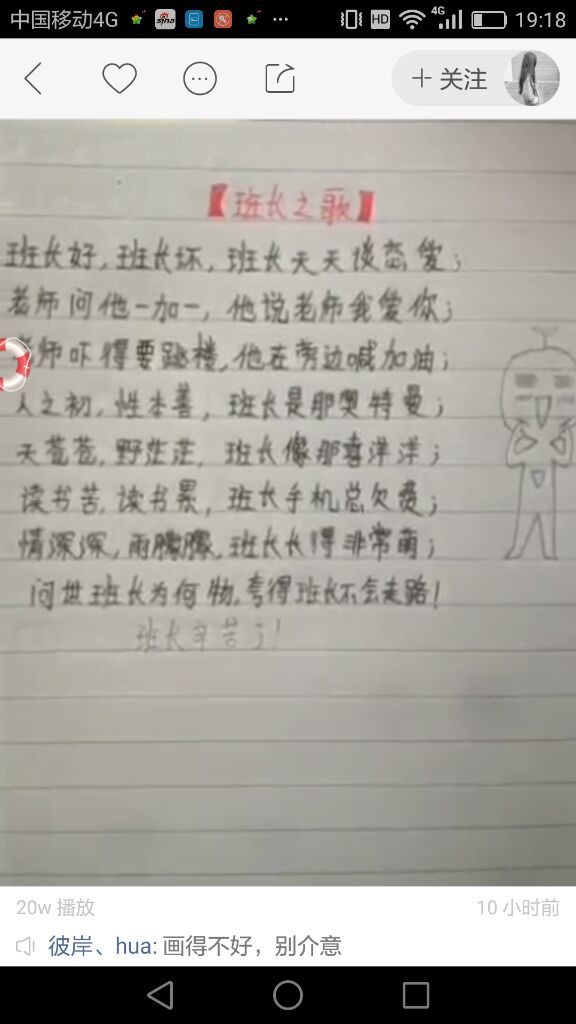 中国移动4G
HD
4G
19:18
+ 关注
【班长之歌】
班长好,班长坏,班长天天谈恋爱;
老师问他一加一,他说老师我爱你;
老师吓得要跳楼,他在旁边喊加油;
人之初,性本善,班长是那奥特曼;
天苍苍,野茫茫,班长像那喜洋洋;
读书苦,读书累,班长手机总欠费;
情深深,雨朦朦,班长长得非常萌;
问世班长为何物,夸得班长不会走路!
班长辛苦了!
20w 播放
10 小时前
彼岸、hua: 画得不好，别介意